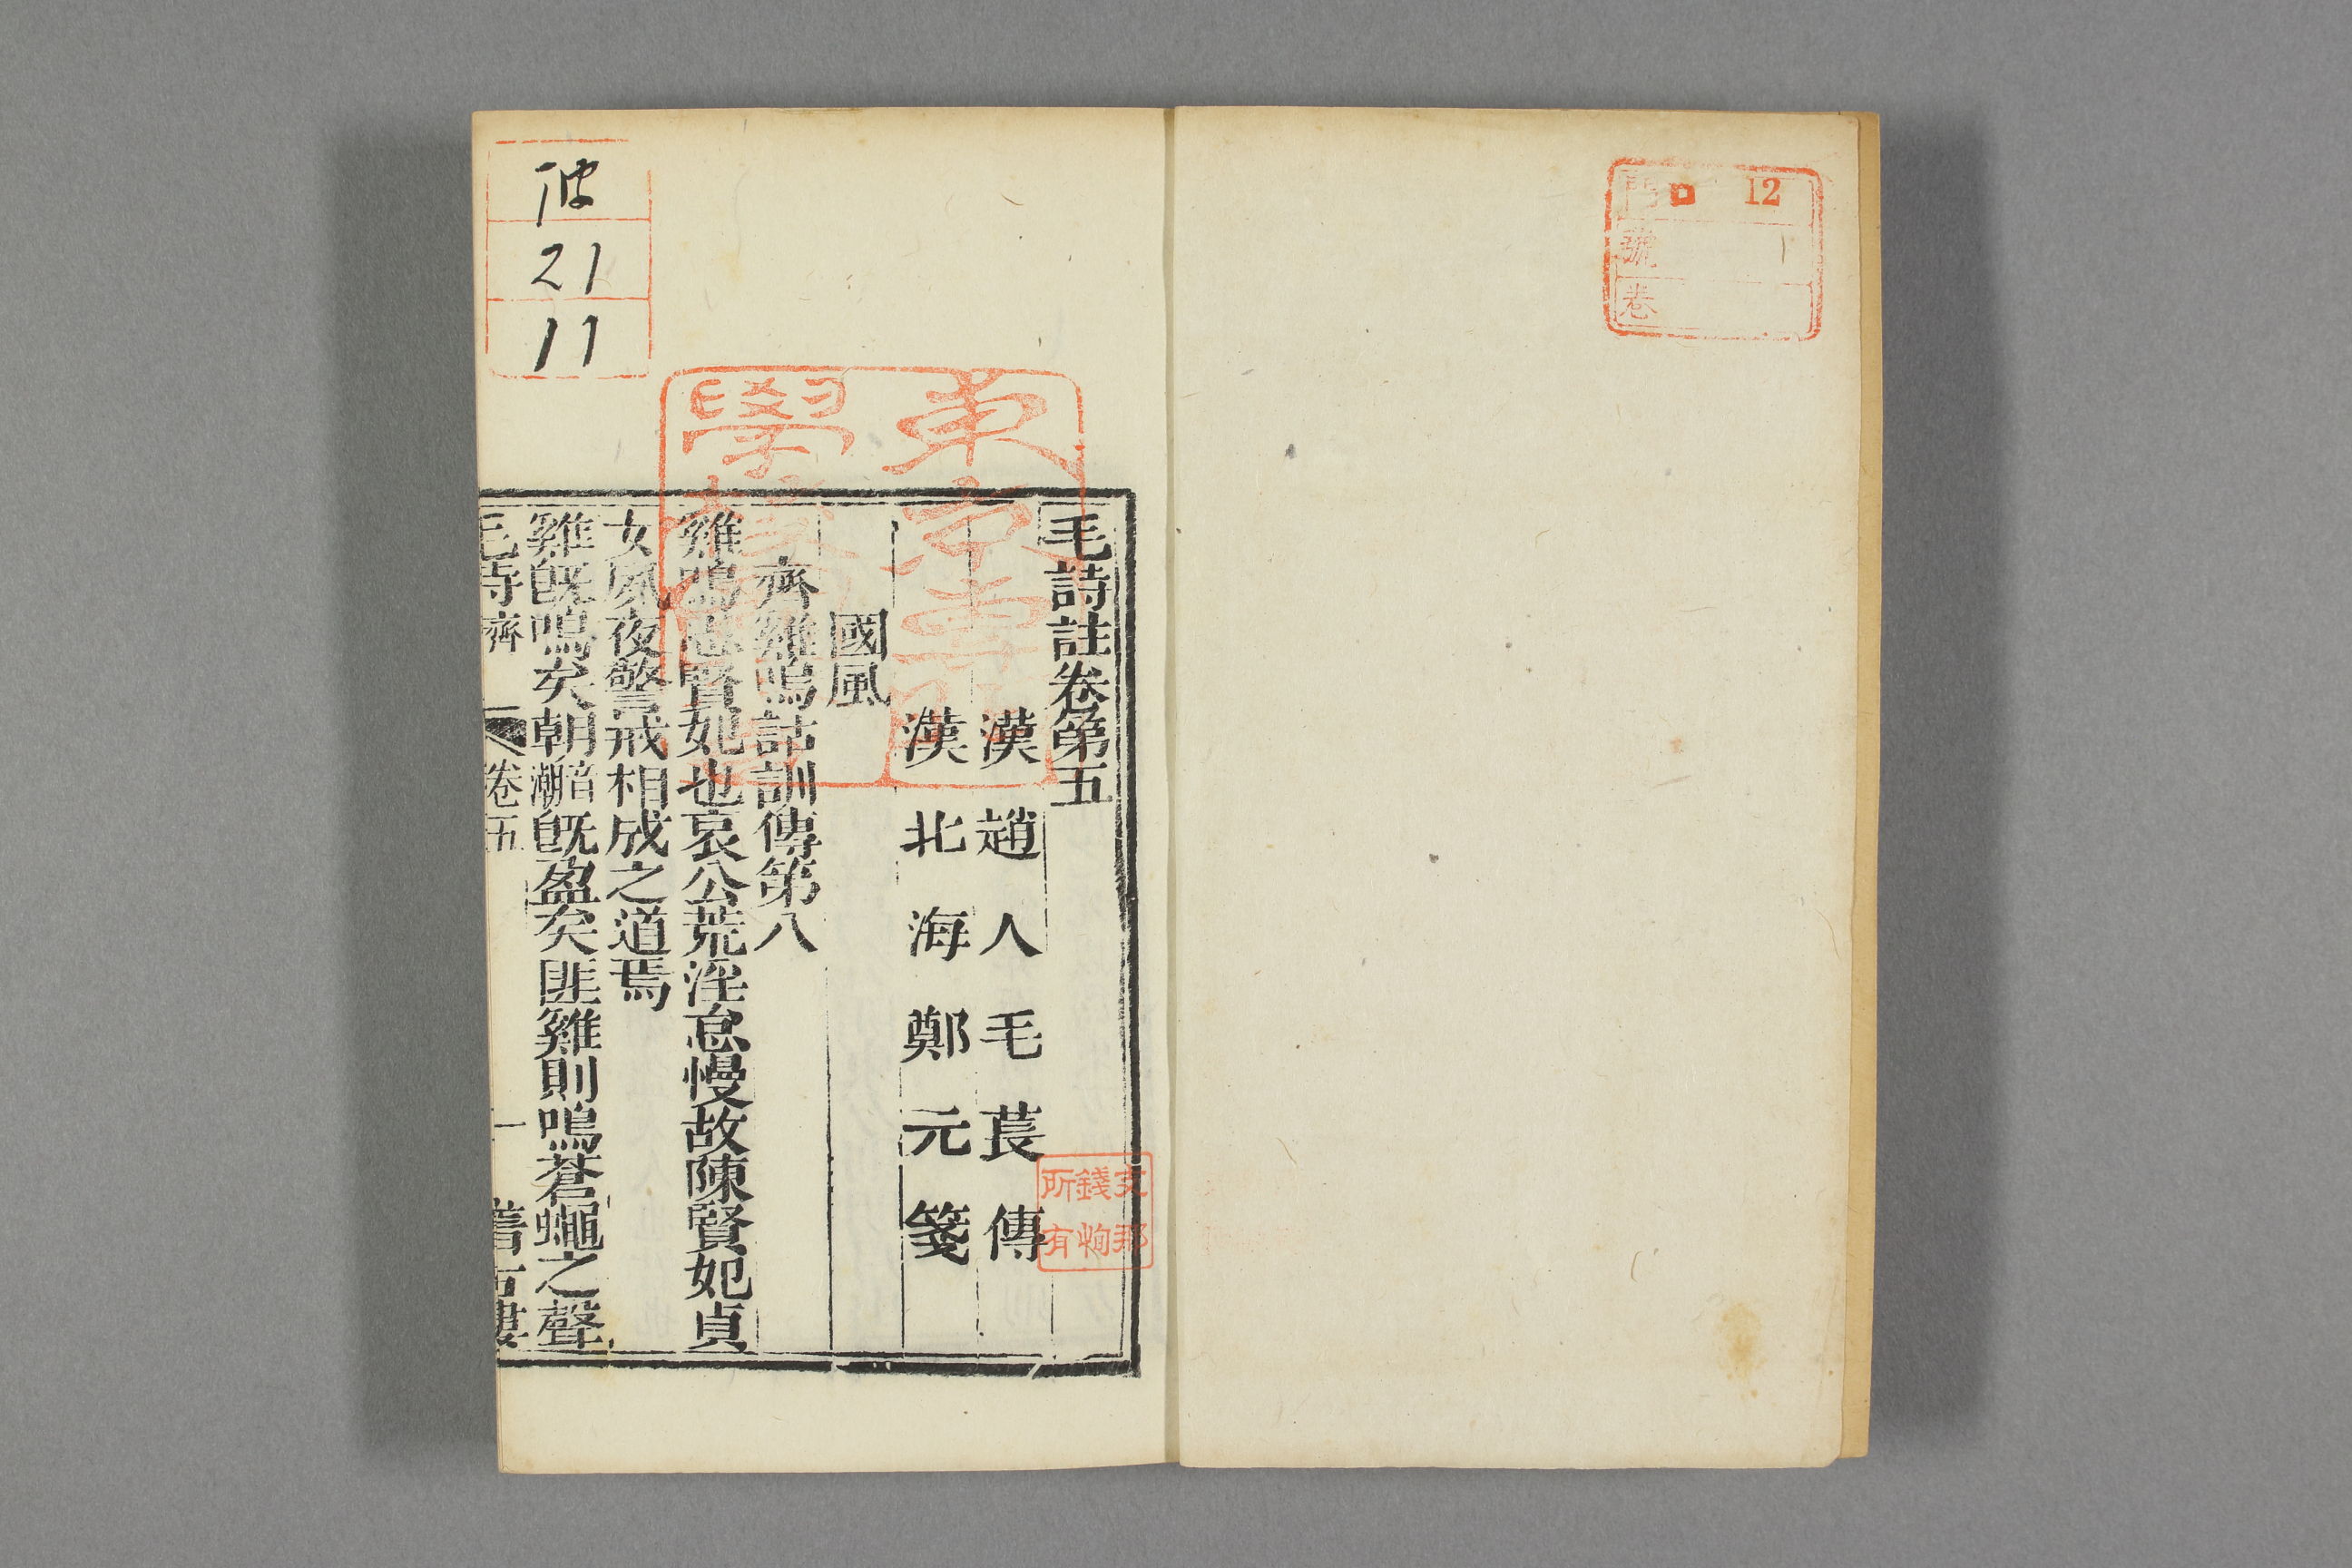 門 ロ 12
號
卷
毛詩註卷第五
漢趙人毛萇傳
漢北海鄭元箋
國風
齊雞鳴詁訓傳第八
雞鳴思賢妃也哀公荒淫怠慢故陳賢妃貞
女夙夜警戒相成之道焉
雞旣鳴矣朝音潮旣盈矣匪雞則鳴蒼蠅之聲
毛詩 齊 卷五 一
東京專門
學校
支那
錢恂
所有
21
11